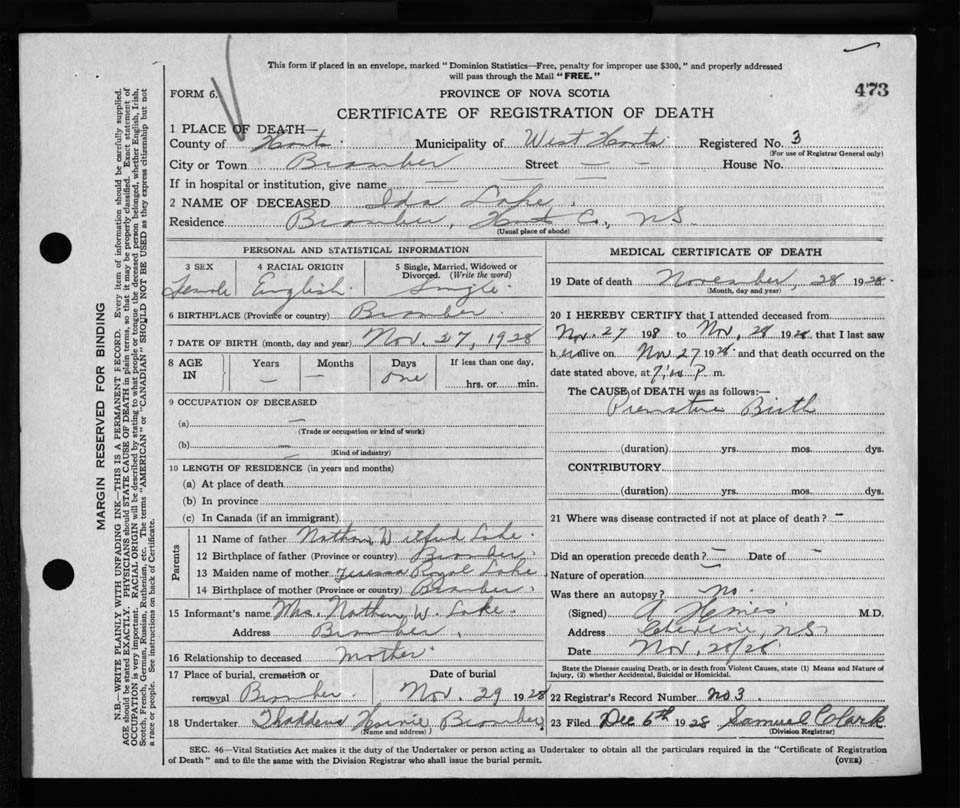 This form if placed in an envelope, marked "Dominion Statistics—Free, penalty for improper use $300," and properly addressed
will pass through the Mail "FREE."
FORM 6.
PROVINCE OF NOVA SCOTIA
473
CERTIFICATE OF REGISTRATION OF DEATH
1 PLACE OF DEATH—
County of Hants Municipality of West Hants Registered No. 3
(For use of Registrar General only)
City or Town Bramber Street — — House No.
If in hospital or institution, give name — — —
2 NAME OF DECEASED Ida Lake
Residence Bramber, Hants Co., N.S.
(Usual place of abode)
PERSONAL AND STATISTICAL INFORMATION
3 SEX 4 RACIAL ORIGIN 5 Single, Married, Widowed or Divorced. (Write the word)
Female English. Single.
6 BIRTHPLACE (Province or country) Bramber.
7 DATE OF BIRTH (month, day and year) Nov. 27, 1928
8 AGE IN Years Months Days If less than one day,
— — one hrs. or min.
9 OCCUPATION OF DECEASED
(a) —
(Trade or occupation or kind of work)
(b) —
(Kind of industry)
10 LENGTH OF RESIDENCE (in years and months) —
(a) At place of death
(b) In province
(c) In Canada (if an immigrant)
Parents
11 Name of father Nathan Wilfred Lake.
12 Birthplace of father (Province or country) Bramber.
13 Maiden name of mother Teressa Royal Lake
14 Birthplace of mother (Province or country) Bramber.
15 Informant's name Mrs. Nathan W. Lake.
Address Bramber.
16 Relationship to deceased mother.
17 Place of burial, cremation or removal Bramber. Date of burial Nov. 29 1928
18 Undertaker Thaddeus Bramber
(Name and address)
MEDICAL CERTIFICATE OF DEATH
19 Date of death November, 28 1928.
(Month, day and year)
20 I HEREBY CERTIFY that I attended deceased from
Nov. 27 1928 to Nov. 28 1928 that I last saw
her alive on Nov 27 1928. and that death occurred on the
date stated above, at P. m.
The CAUSE of DEATH was as follows:—
Premature Birth
(duration) yrs. mos. dys.
CONTRIBUTORY
(duration) yrs. mos. dys.
21 Where was disease contracted if not at place of death? —
Did an operation precede death? — Date of —
Nature of operation —
Was there an autopsy? no.
(Signed) A M.D.
Address N.S.
Date Nov. 28/28.
State the Disease causing Death, or in death from Violent Causes, state (1) Means and Nature of
Injury, (2) whether Accidental, Suicidal or Homicidal.
22 Registrar's Record Number no 3.
23 Filed Dec 6th 1928 Samuel Clark
(Division Registrar)
SEC. 46—Vital Statistics Act makes it the duty of the Undertaker or person acting as Undertaker to obtain all the particulars required in the "Certificate of Registration
of Death" and to file the same with the Division Registrar who shall issue the burial permit.
(OVER)
MARGIN RESERVED FOR BINDING
N.B.—WRITE PLAINLY WITH UNFADING INK—THIS IS A PERMANENT RECORD. Every item of information should be carefully supplied.
AGE should be stated EXACTLY. PHYSICIANS should STATE CAUSE OF DEATH in plain terms, so that it may be properly classified. Exact statement of
OCCUPATION is very important. RACIAL ORIGIN will be described by stating to what people or tongue the deceased person belonged, whether English, Irish,
Scotch, French, German, Russian, Ruthenian, etc. The terms "AMERICAN" or "CANADIAN" SHOULD NOT BE USED as they express citizenship but not
a race or people. See instructions on back of Certificate.